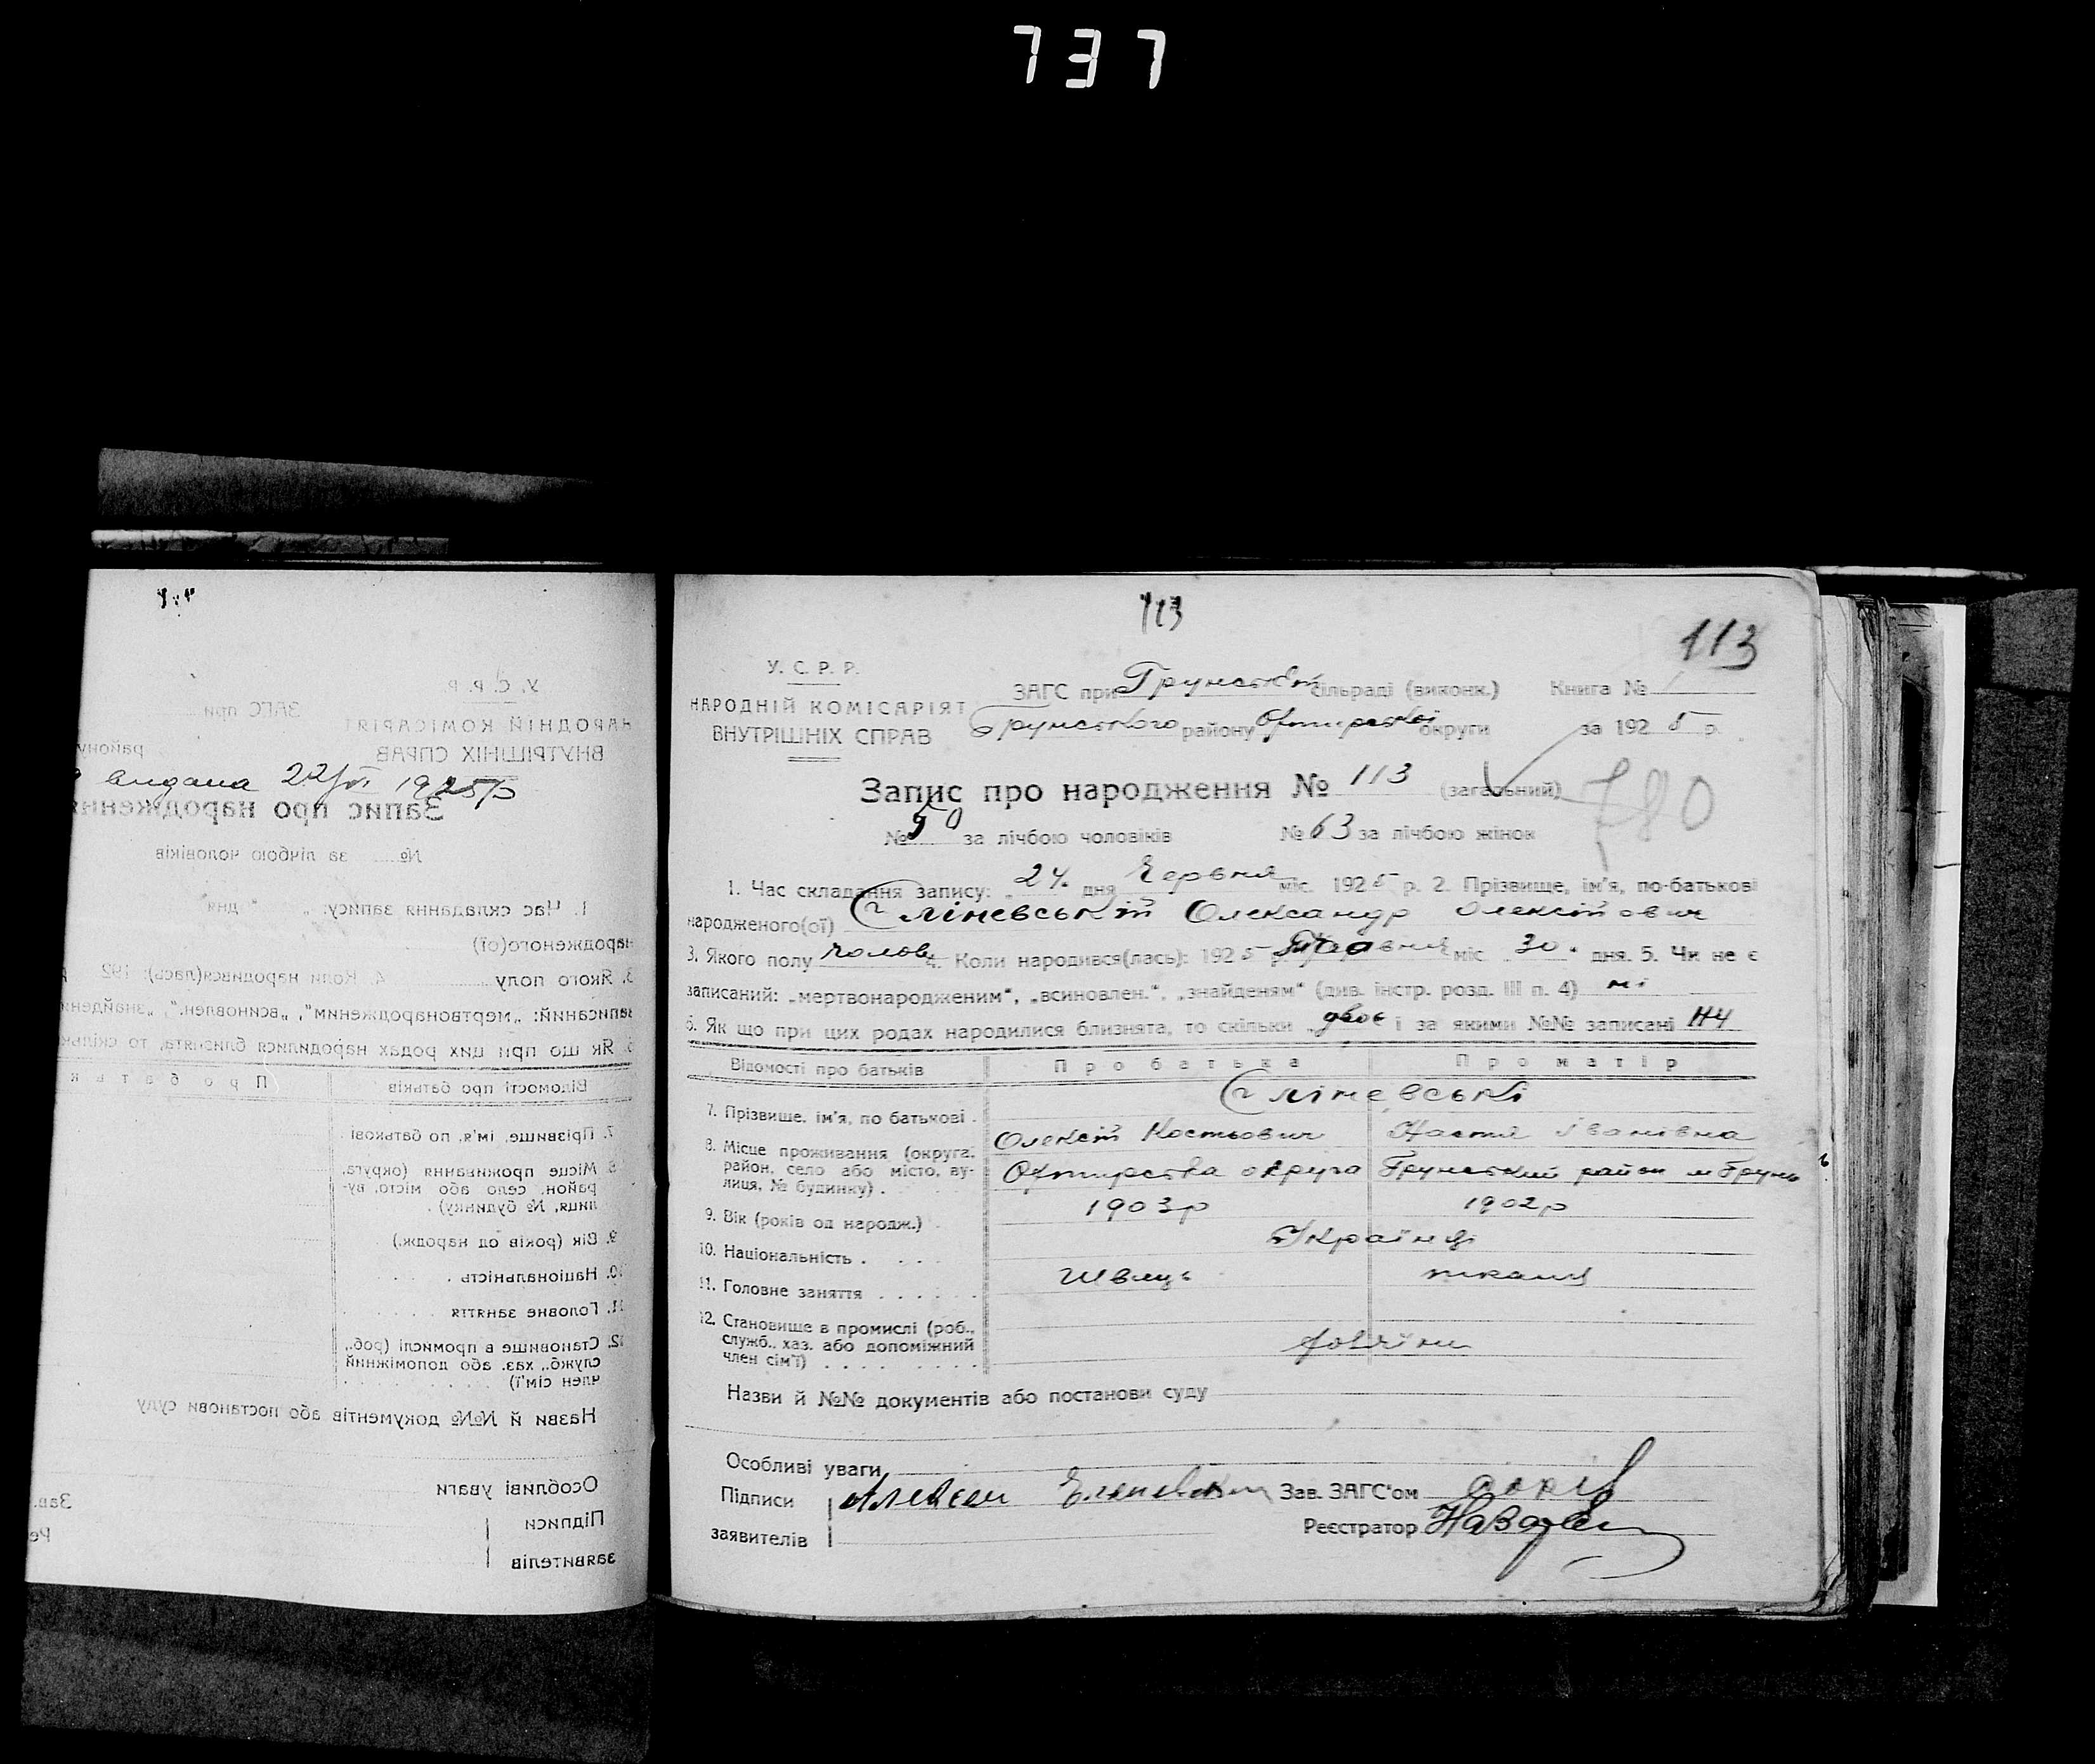 737
113
113
У. С. Р. Р.
НАРОДНІЙ КОМІСАРІЯТ
ВНУТРІШНІХ СПРАВ
ЗАГС при Грунській сільраді (виконк.) Книга № 1
Грунського району Охтирської округи за 1925 р.
Запис про народження № 113 (загальний)
780
№ 50 за лічбою чоловіків № 63 за лічбою жінок
1. Час складання запису: „ 24 " дня Червня міс. 1925 р. 2. Прізвище, ім'я, по-батькові
народженого(ої) Єліневській Олександр Олексійович
3. Якого полу чолов. 4. Коли народився(лась): 1925 р. Травня міс. 30 дня. 5. Чи не є
записаний: „мертвонародженим", „всиновлен.", „знайденям" (див. інстр. розд. III п. 4) ні
6. Як що при цих родах народилися близнята, то скільки двоє і за якими №№ записані 114
Відомості про батьків Про батька Про матір
Єліневські
7. Прізвище, ім'я, по батькові . Олексій Костьович Настя Іванівна
8. Місце проживання (округа, район, село або місто, вулиця, № будинку) . Охтирська округа Грунський район м Грунь
9. Вік (років од народж.) . 1903р 1902р
10. Національність . . . . Українці
11. Головне заняття . . . . . . Швець ткаля
12. Становище в промислі (роб., служб., хаз. або допоміжний член сім'ї) . . . . . . . . .
Назви й №№ документів або постанови суду
Особливі уваги
Підписи Алексей Зав. ЗАГС'ом
заявителів Реєстратор
видана 22/VI 1925р
У. С. Р. Р.
НАРОДНІЙ КОМІСАРІЯТ
ВНУТРІШНІХ СПРАВ
ЗАГС при
району
Запис про народження
№ за лічбою чоловіків
1. Час складання запису: „ " дня
народженого(ої)
3. Якого полу 4. Коли народився(лась): 192
записаний: „мертвонародженим", „всиновлен.",
6. Як що при цих родах народилися близнята, то
Відомості про батьків Про батьк
7. Прізвище, ім'я, по батькові .
8. Місце проживання (округа,
район, село або місто, ву-
лиця, № будинку) .
9. Вік (років од народж.)
10. Національність . . . .
11. Головне заняття . . . . . .
12. Становище в промислі (роб.,
служб., хаз. або допоміжний
член сім'ї) . . . . . . . . .
Назви й №№ документів або постанови суду
Особливі уваги
Підписи Зав.
заявителів Ре